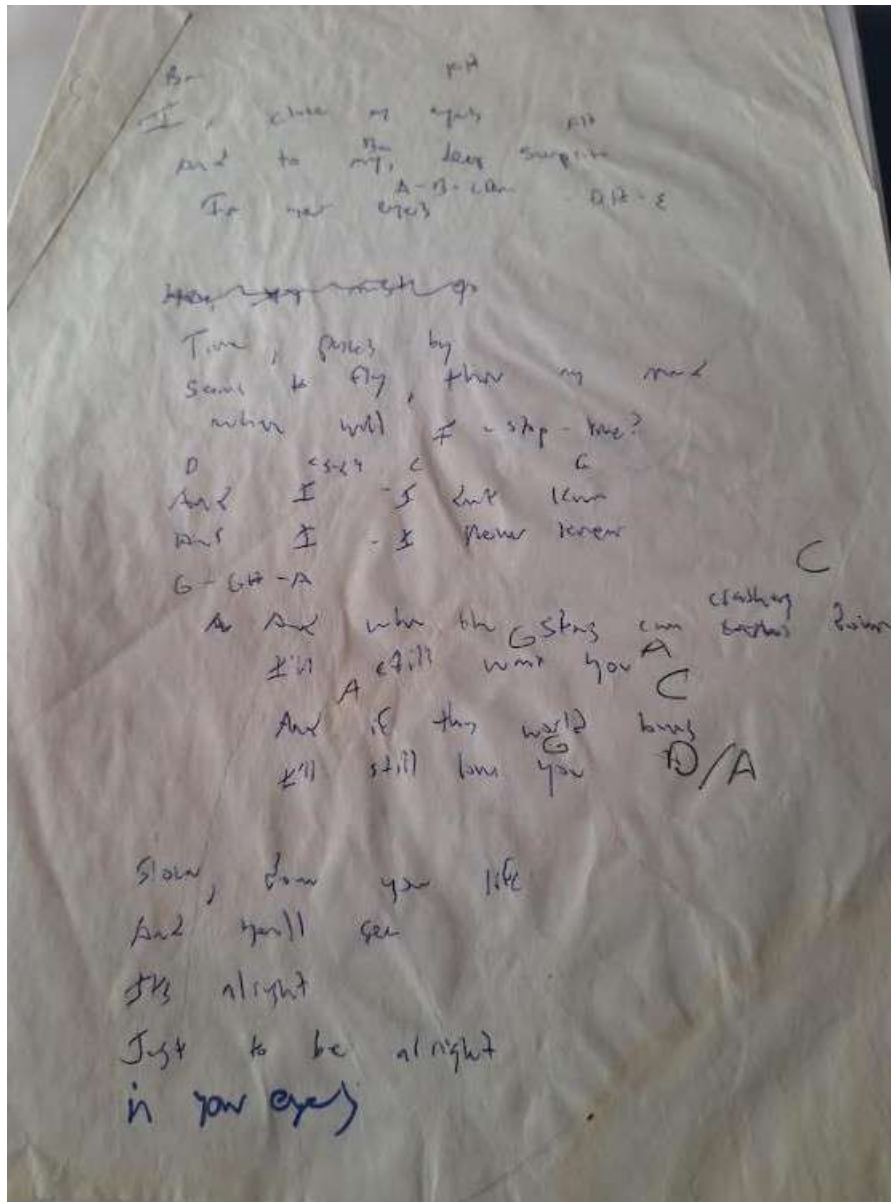 Bm F#
I, close my eyes
F#
Bm
And to my, deep surprise
A-B-C#m
In your eyes
Time, passes by
Seems to fly, thru my mind
when will I - stop - time?
D C G
And I - I dont know
And I - I never knew
G-G#-A
C
crashing
And when the stars come down
G A
I'll still want you
A C
And if this world burns
G
I'll still love you D/A
Slow, down your life
And you'll see
Its alright
Just to be alright
in your eyes